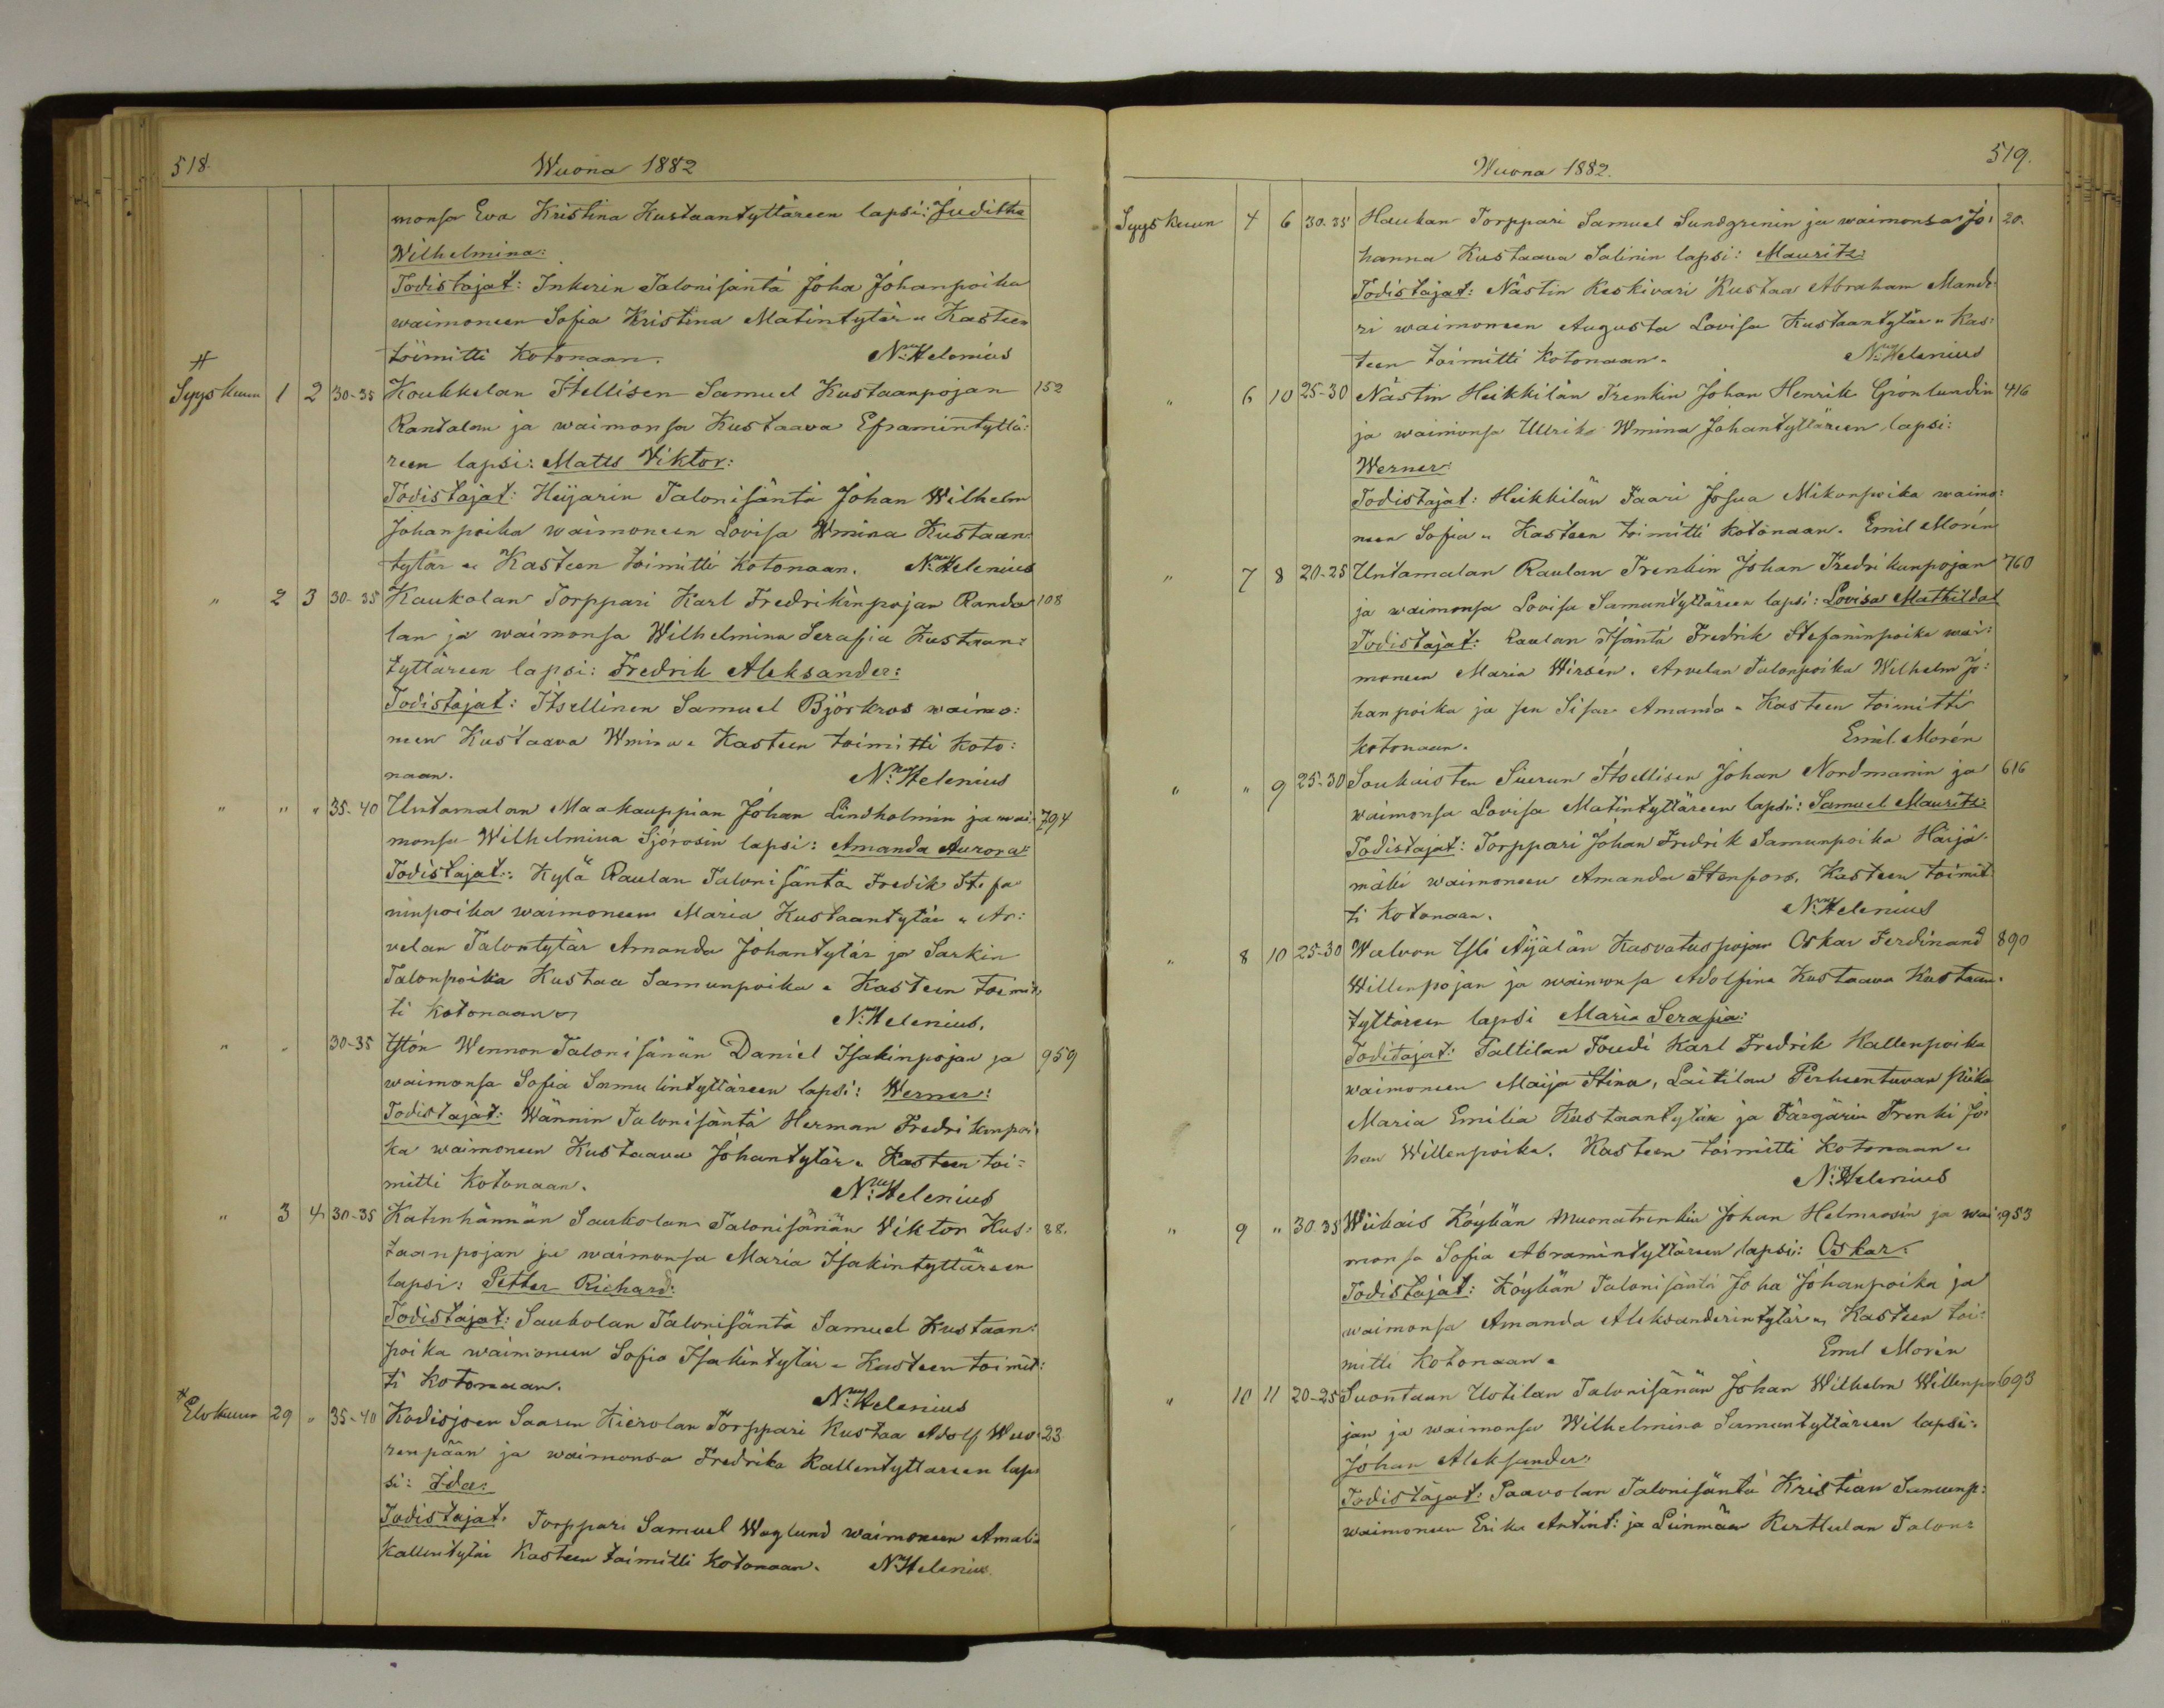 518.
Wuona 1882
monsa Eva Kristina Kustaantyttäreen lapsi: Juditha
Wilhelmina:
Todistajat: Inkerin Talonisäntä Joha Johanpoika
waimoneen Sofia Kristina Matintytär „ Kasteen
toimitti kotonaan. N:m Helenius
Syyskuun 1 2 30-35 Koukkelan Itellisen Samuel Kustaanpojan 152
Rantalan ja waimonsa Kustaava Eframintyttä:
reen lapsi: Matts Viktor:
Todistajat: Heijarin Talonisäntä Johan Wilhelm
Johanpoika waimoneen Lovisa Wmina Kustaan:
tytär „ Kasteen toimitti kotonaan. N:m Helenius
„ 2 3 30-35 Kaukolan Torppari Karl Fredrikinpojan Randa 108
lan ja waimonsa Wilhelmina Serafia Kustaan:
tyttäreen lapsi: Fredrik Aleksander:
Todistajat: Itsellinen Samuel Björkros waimo:
neen Kustaava Wmina „ Kasteen toimitti koto:
naan. N:m Helenius
„ „ „ 35-40 Untamalan Maakauppian Johan Lindholmin ja wai: 794
monsa Wilhelmina Sjörosin lapsi: Amanda Aurora:
Todistajat: Kylä Raulan Talonisäntä Fredik Stefa
ninpoika waimoneen Maria Kustaantytär „ Ar:
velan Talontytär Amanda Johantytär ja Sarkin
Talonpoika Kustaa Samunpoika „ Kasteen toimit:
ti kotonaan N:m Helenius.
„ „ 30-35 Ytön Wennon Talonisänän Daniel Isakinpojan ja 959
waimonsa Sofia Samulintyttäreen lapsi: Werner:
Todistajat: Wännin Talonisäntä Herman Fredrikinpoi
ka waimoneen Kustaava Johantytär „ Kasteen toi=
mitti kotonaan. N:m Helenius
„ 3 4 30-35 Katinhännän Saukolan Talonisänän Viktor Kus: 88.
taanpojan ja waimonsa Maria Isakintyttäreen
lapsi: Petter Richard:
Todistajat: Saukolan Talonisäntä Samuel Kustaan:
poika waimoneen Sofia Isakintytär „ Kasteen toimit:
ti kotonaan. N:m Helenius
Elokuun 29 „ 35-40 Kodisjoen Saaren Kierolan Torppari Kustaa Adolf Wuo: 23
renpään ja waimonsa Fredrika Kallentyttareen lap:
si: Ida:
Todistajat. Torppari Samuel Waglund waimoneen Amalia
Kallentytär Kasteen toimitti kotonaan. N:m Helenius.
519.
Wuona 1882.
Syyskuun 4 6 30-35 Haukan Torppari Samuel Sundgrenin ja waimonsa Jo: 20.
hanna Kustaava Salinin lapsi: Mauritz:
Todistajat: Nästin Keskivari Kustaa Abraham Mande:
ri waimoneen Augusta Lovisa Kustaantytär „ Kas:
teen toimitti kotonaan. N:m Helenius
„ 6 10 25-30 Nästin Heikkilän Trenkin Johan Henrik Grönlundin 416
ja waimonsa Ullrika Wmina Johantyttäreen lapsi:
Werner:
Todistajat: Heikkilän Faari Josua Mikonpoika waimo:
neen Sofia „ Kasteen toimitti kotonaan. Emil Morén
„ 7 8 20-25 Untamalan Raulan Trenkin Johan Fredrikunpojan 760
ja waimonsa Lovisa Samuntyttäreen lapsi: Lovisa Mathilda
Todistajat: Raulan Isäntä Fredrik Stefaninpoika wai:
moneen Maria Wirsén. Arvelan Talonpoika Wilhelm Jo:
hanpoika ja sen Sisar Amanda „ Kasteen toimitti
kotonaan. Emil Morén
„ „ 9 25-30 Soukaisten Siuerun Itsellisen Johan Nordmanin ja 616
waimonsa Lovisa Matintyttäreen lapsi: Samuel Mauritz:
Todistajat: Torppari Johan Fredrik Samunpoika Härjä:
mäki waimoneen Amanda Stenfors. Kasteen toimit:
ti kotonaan. N:m Helenius
„ 8 10 25-30 Walvon Ysi Äijälän Kasvatuspojan Oskar Ferdinand 890
Willenpojan ja waimonsa Adolfina Kustaava Kustaan:
tyttäreen lapsi Maria Serafia:
Toditajat: Taltilan Foudi Karl Fredrik Kallenpoika
waimoneen Maija Stina, Laitilan Perheentuvan Piika
Maria Emilia Kustaantytär ja Färgärin Trenki Jo:
han Willenpoika. Kasteen toimitti kotonaan „
N:m Helenius
„ 9 „ 30-35 Wiikais Köykän Muonatrenkin Johan Helmrosin ja wai: 953
monsa Sofia Abramintyttäreen lapsi: Oskar:
Todistajat: Köykän Talonisäntä Joha Johanpoika ja
waimonsa Amanda Aleksanderintytär „ Kasteen toi:
mitti kotonaan „ Emil Morén
„ 10 11 20-25 Suontaan Uotilan Talonisänän Johan Wilhelm Willenpo 693
jan ja waimonsa Wilhelmina Samuntyttäreen lapsi:
Johan Aleksander:
Todistajat: Paavolan Talonisäntä Kristian Samunp:
waimoneen Erika Antint: ja Leinmäen Kerttulan Talon=